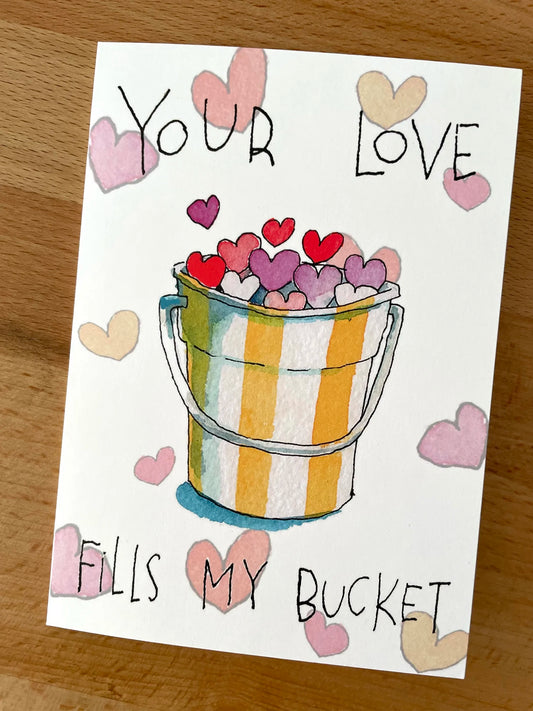 YOUR LOVE
FiLLS MY BUCKET